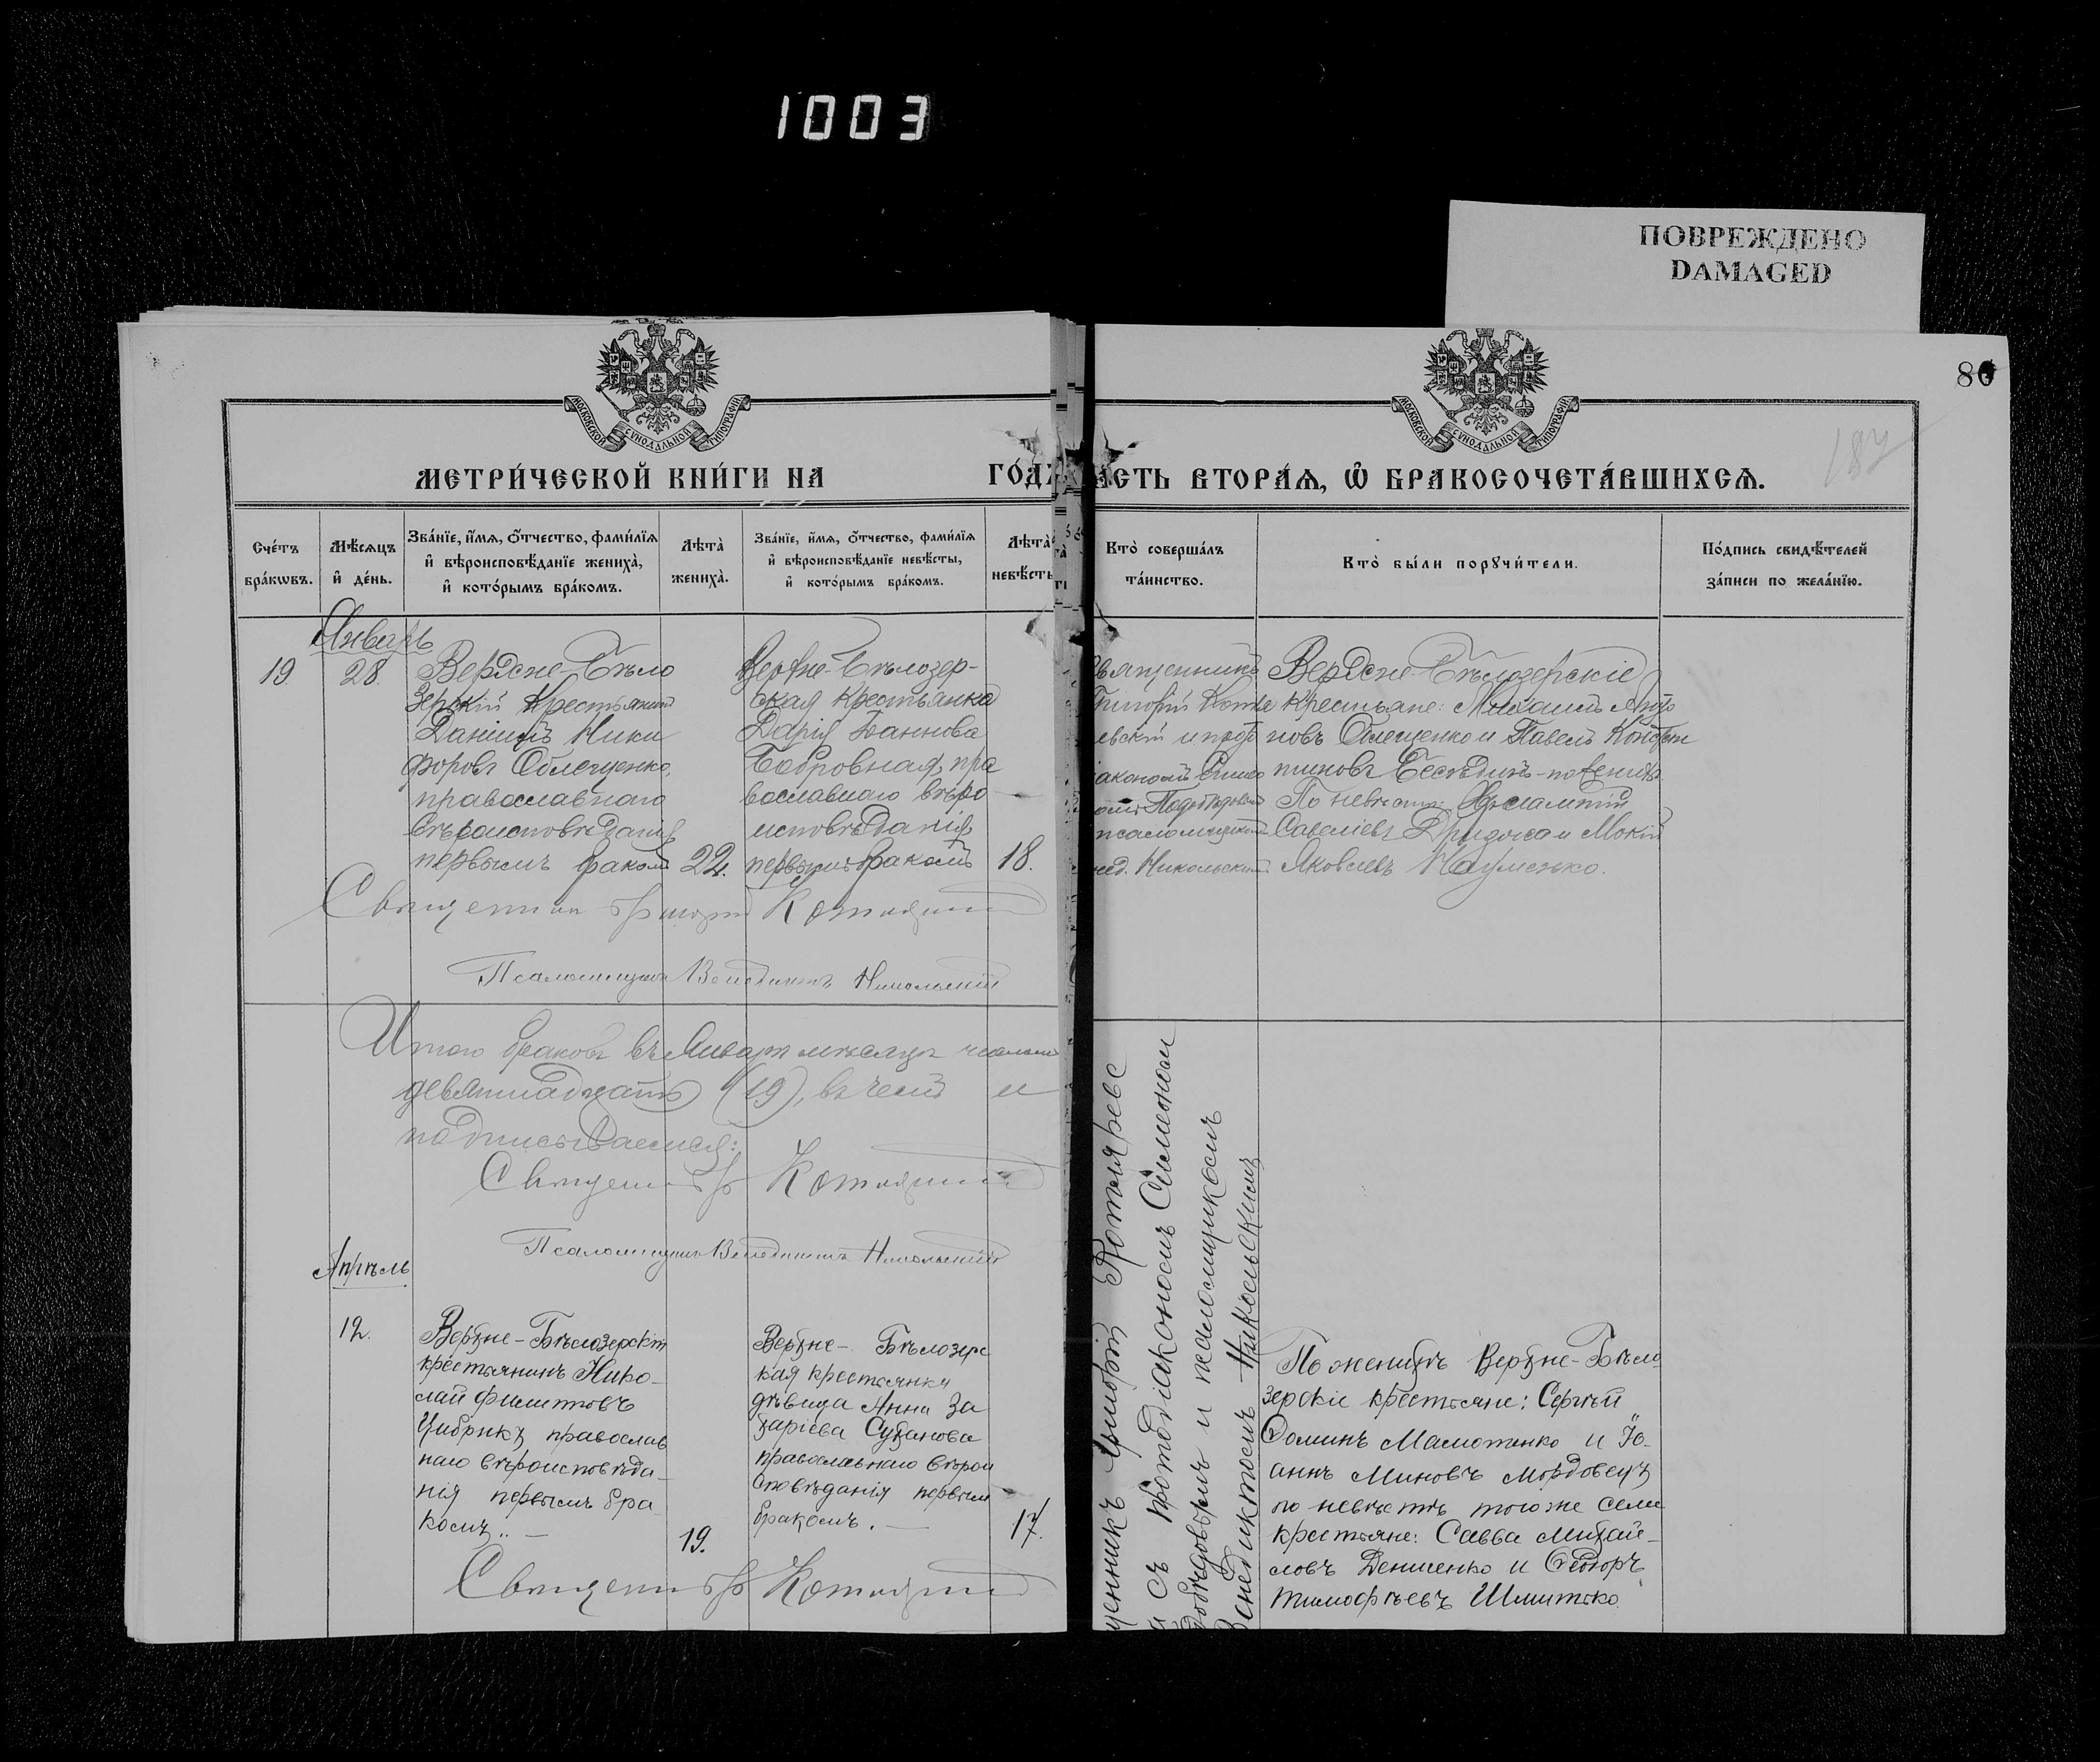 1003
ПОВРЕЖДЕНО
DAMAGED
80
187
МОСКОВСКОЙ СѴНОДАЛЬНОЙ ТИПОГРАФІИ
МОСКОВСКОЙ СѴНОДАЛЬНОЙ ТИПОГРАФІИ
МЕТРИ́ЧЕСКОЙ КНИ́ГИ НА ГО́ДЪ
ЧА́СТЬ ВТОРА́Ѧ, Ѽ БРАКОСОЧЕТА́ВШИХСѦ.
Сче́тъ
бра́кѡвъ.
Мѣ́сѧцъ
и҆ де́нь.
Зва́нїе, и҆́мѧ, ѻ҆́тчество, фами́лїѧ
и҆ вѣроисповѣ́данїе жениха̀,
и҆ кото́рымъ бра́комъ.
Лѣта̀
жениха̀.
Зва́нїе, и҆́мѧ, ѻ҆́тчество, фами́лїѧ
и҆ вѣроисповѣ́данїе невѣ́сты,
и҆ кото́рымъ бра́комъ.
Лѣта̀
невѣ́сты
Кто̀ соверша́лъ
та́инство.
Кто̀ бы́ли порꙋчи́тели.
По́дпись свидѣ́телей
за́писи по жела́нїю.
Январь
19
28.
Верхне-Бѣло
зерскій крестьянинъ
Даніилъ Ники
форовъ Облещенко,
православнаго
вѣроисповѣданія
первымъ бракомъ
22.
Верхне-Бѣлозер-
ская крестьянка
Дарія Іоаннова
Бобровная, пра
вославнаго вѣро
исповѣданія
первымъ бракомъ
18.
Священникъ
Григорій Котля
ревскій и прот
псаломщикомъ
Никольскимъ
Верхне-Бѣлозерскіе
крестьяне: Михаилъ
новъ Облещенко и Павелъ Констан
тиновъ Бесѣдинъ - по женихѣ
По невѣстѣ:
Савеліевъ и Мокій
Яковлевъ Науменко.
Священникъ Григорій Котляревскій
Псаломщикъ Венедиктъ Никольскій
Итого браковъ въ Январѣ мѣсяцѣ
девятнадцать (19), въ чемъ и
подписываемся:
Священникъ Гр Котляревскій
Псаломщикъ Венедиктъ Никольскій
Апрѣль
12.
Верхне-Бѣлозерскій
крестьянинъ Нико-
лай Филипповъ
Цибрикъ православ
наго вѣроисповѣда-
нія первымъ бра-
комъ..—
19.
Верхне- Бѣлозерс
кая крестьянка
дѣвица Анна За
харіева Суханова
православнаго вѣрои
сповѣданія первымъ
бракомъ.—
17.
щенникъ Григорій Котляревс
й съ протодіакономъ Симеоном
добѣдовымъ и псаломщикомъ
Венедиктомъ Никольскимъ
По женихѣ Верхне-Бѣло
зерскіе крестьяне: Сергѣй
Доминъ Мамотенко и Іо-
аннъ Миновъ Мордовецъ
по невѣстѣ того же села
крестьяне: Савва Михай-
ловъ Денисенко и Ѳедоръ
Тимофѣевъ Шмитько.
Священникъ Гр Котляревскій